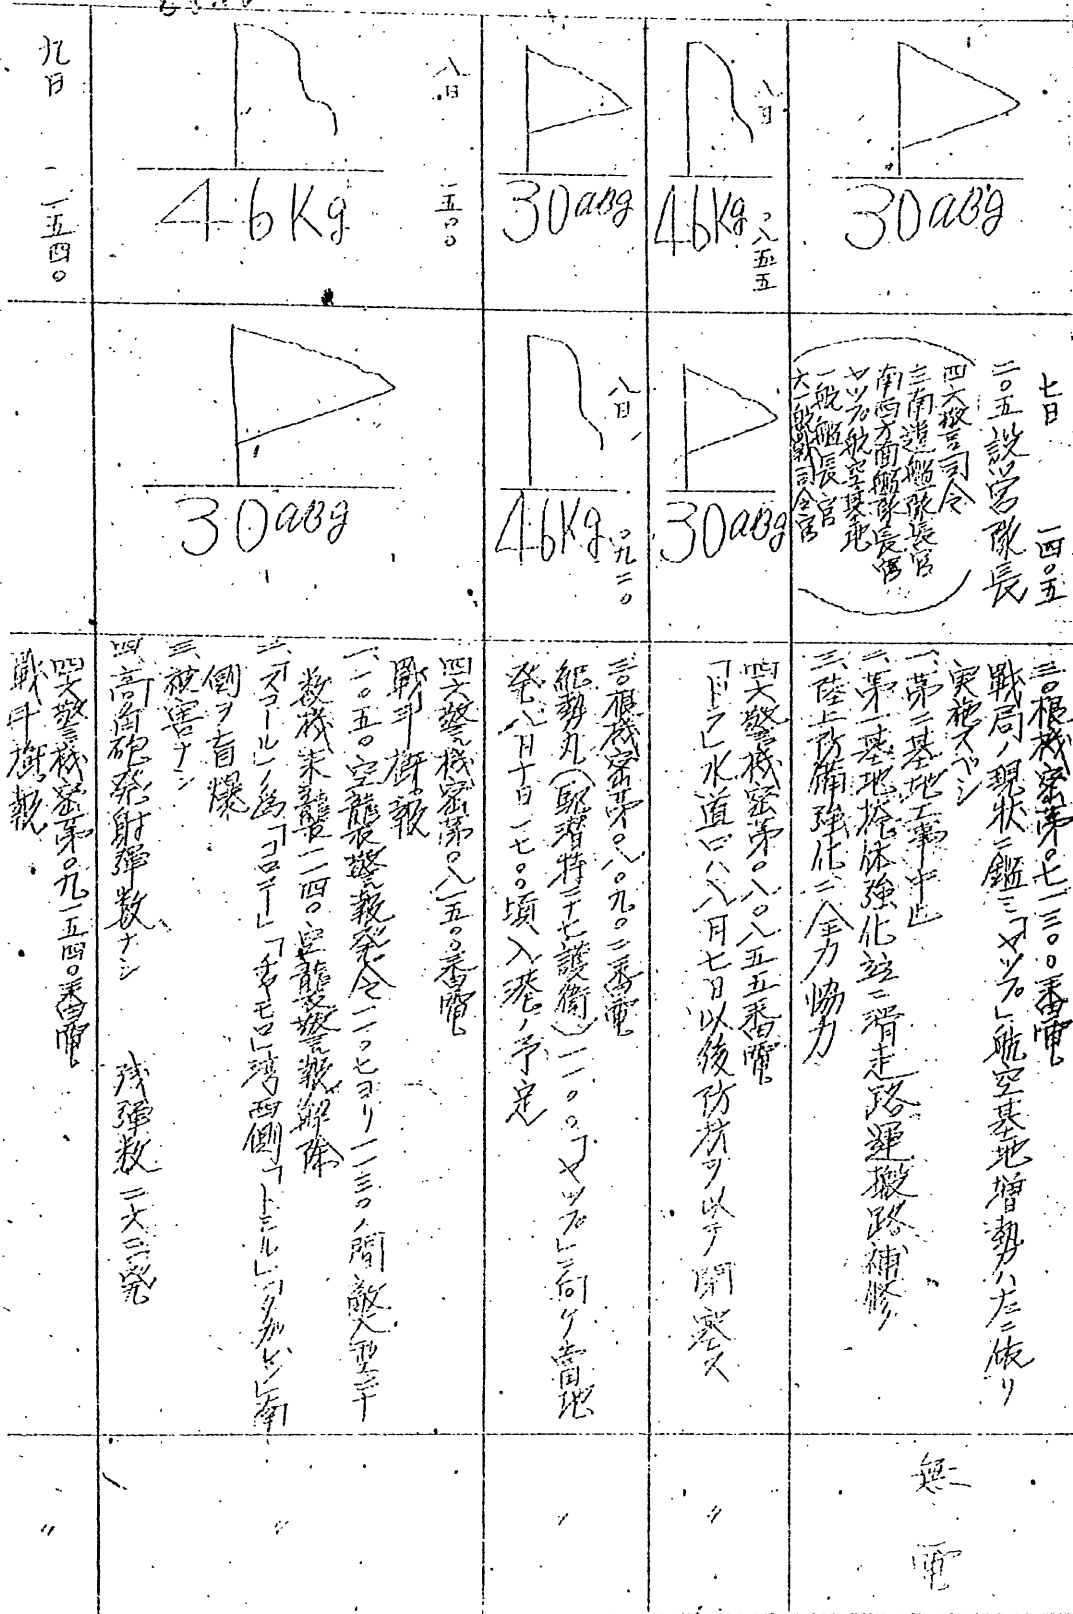 30aBg
七日 一四〇五
二〇五設営隊長
四六警司令
三南遣艦隊長官
南西方面艦隊長官
ヤップ航空基地
一航艦長官
六一航戦司令官
三〇根機密第〇七一三〇〇番電
戦局ノ現状ニ鑑ミ「ヤップ」航空基地増勢ハ左ニ依リ
実施スベシ
一、第二基地工事中止
二、第一基地掩体強化竝ニ滑走路運搬路補修
三、陸上防備強化ニ全力協力
無電
八日 〇八五五
46Kg
30aBg
四六警機密第〇八〇八五五番電
「ドフ」水道口ハ八月七日以後防材ヲ以テ閉塞ス
〃
30aBg
八日 〇九二〇
46Kg
三〇根機密第〇八〇九〇二番電
紀勢丸(駆潜特三十七護衛)一一〇〇「ヤップ」ニ向ケ当地
発八月十日一七〇〇頃入港ノ予定
〃
八日 一五〇〇
46Kg
30aBg
四六警機密第〇八一五〇〇番電
戦斗概報
一、一〇五〇空襲警報発令一一〇七ヨリ一一三〇ノ間敵大型二十
数機来襲一一四〇空襲警報解除
二、「スコール」ノ為「コロニー」「チャモロ」湾西側「トミル」「タガレン」南
側ヲ盲爆
三、被害ナシ
四、高角砲発射弾数ナシ 残弾数二六二発
〃
九日 一五四〇
四六警機密第〇九一五四〇番電
戦斗概報
〃